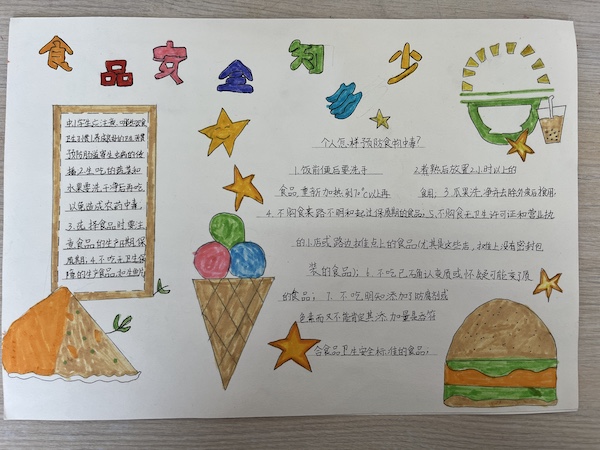 食品安全知多少
中小学生应注意哪些饮食
卫生习惯1.养成良好的卫生习惯
预防肠道寄生虫病的传
播2.生吃的蔬菜和
水果要洗干净后再吃
以免造成农药中毒,
3.选择食品时要注
意食品的生产日期保
质期,4.不吃无卫生保
障的生产食品,如生鱼片
个人怎样预防食物中毒?
1.饭前便后要洗手
2.煮熟后放置2小时以上的
食品重新加热到70℃以再
食用;3.瓜果洗净并去除外皮后食用,
4.不购食来路不明和超过保质期的食品;5.不购食无卫生许可证和营业执
的小店或路边摊点上的食品(尤其是这些店,摊上没有密封包
装的食品);6.不吃已确认变质或怀疑可能变了质
的食品;7.不吃明知添加了防腐剂或
色素而又不能肯定其添加量是否符
合食品卫生安全标准的食品;